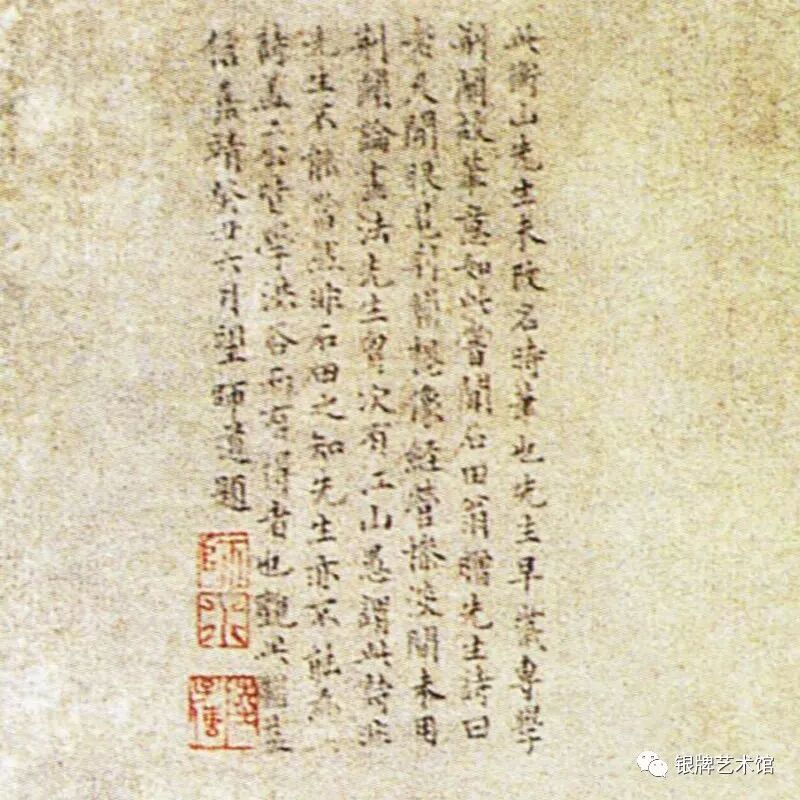 此衡山先生未改名時筆也先生早歲專學
荆關故筆意如此嘗聞石田翁贈先生詩曰
老人開眼見荆關想像經營慘淡間未用
荆關論畫法先生胷次有江山愚謂此詩非
先生不能當且非石田之知先生亦不能為
詩盖二公皆學洪谷而有得者也觀此圖益
信嘉靖癸丑六月望師道題
银牌艺术馆